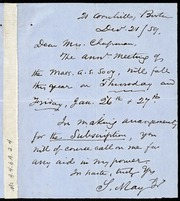 21 Cornhill, Boston
Dec. 21 / 59.
Dear Mrs. Chapman,
The ann'l meeting of
the Mass. A. S. Socy. will fall
this year on Thursday and
Friday, Jan. 26th & 27th
In making arrangements
for the Subscription, you
will of course call on me for
any aid in my power.
In haste, truly Yrs
S. May Jr.